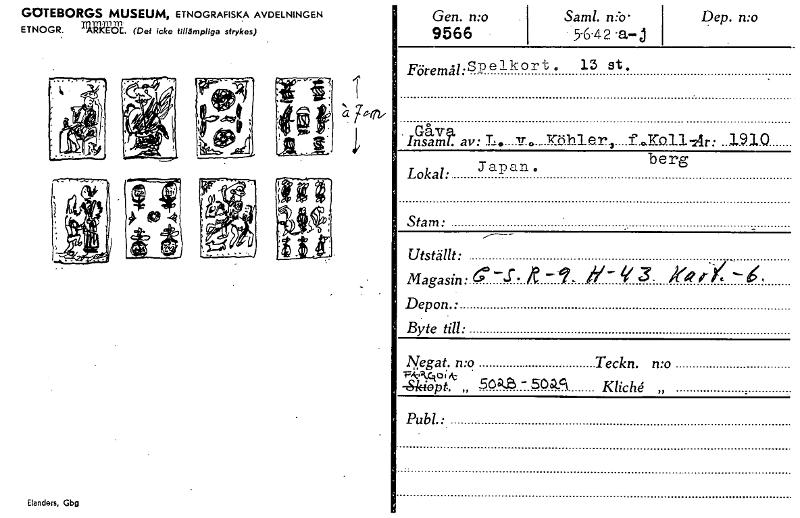 GÖTEBORGS MUSEUM, ETNOGRAFISKA AVDELNINGEN
ETNOGR. ARKEOL. (Det icke tillämpliga strykes)
à 7 cm
Elanders, Gbg
Gen. n:o Saml. n:o Dep. n:o
9566 5·6·42 a-j
Föremål: Spelkort. 13 st.
Gåva
Insaml. av: L. v. Köhler, f.Koll- År: 1910
berg
Lokal: Japan.
Stam:
Utställt:
Magasin: G-S. R-9. H-43. Kart.-6.
Depon.:
Byte till:
Negat. n:o Teckn. n:o
FÄRGDIA
Skiopt. „ 5028-5029 Kliché „
Publ.: